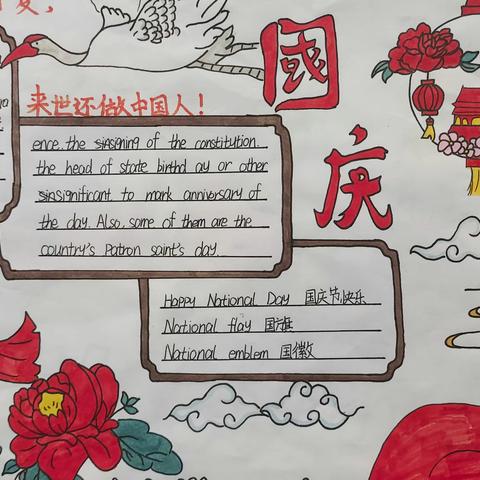 来世还做中国人！
國
慶
ence. the sinsigning of the constitution.
the head of state birthd ay or other
sinsignificant to mark anniversary of
the day. Also, some of them are the
country's Patron saint's day.
Happy National Day 国庆节快乐
National flay 国旗
National emblem 国徽